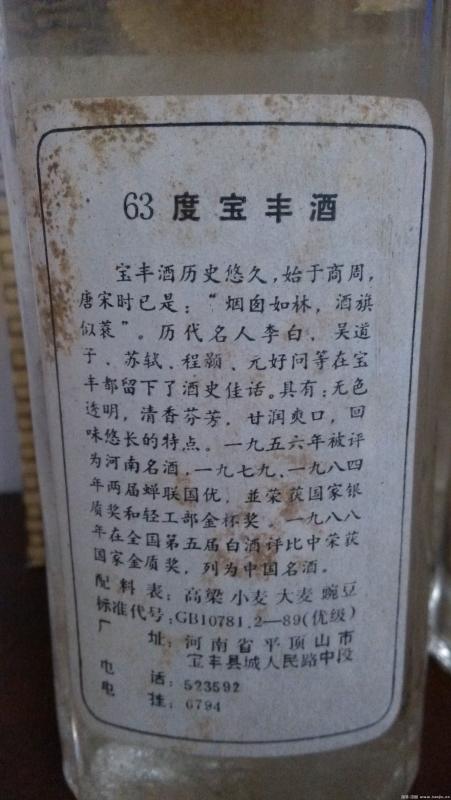 63 度宝丰酒
宝丰酒历史悠久,始于商周,
唐宋时已是：“烟囱如林，酒旗
似蓑”。历代名人李白、吴道
子、苏轼、程颢、元好问等在宝
丰都留下了酒史佳话。具有:无色
透明，清香芬芳，甘润爽口，回
味悠长的特点。一九五六年被评
为河南名酒,一九七九、一九八四
年两届蝉联国优，並荣获国家银
质奖和轻工部金杯奖。一九八八
年在全国第五届白酒评比中荣获
国家金质奖，列为中国名酒。
配料表：高梁 小麦 大麦 豌豆
标准代号:GB10781.2—89(优级)
厂 址：河南省平顶山市
宝丰县城人民路中段
电 话：523592
电 挂：6794